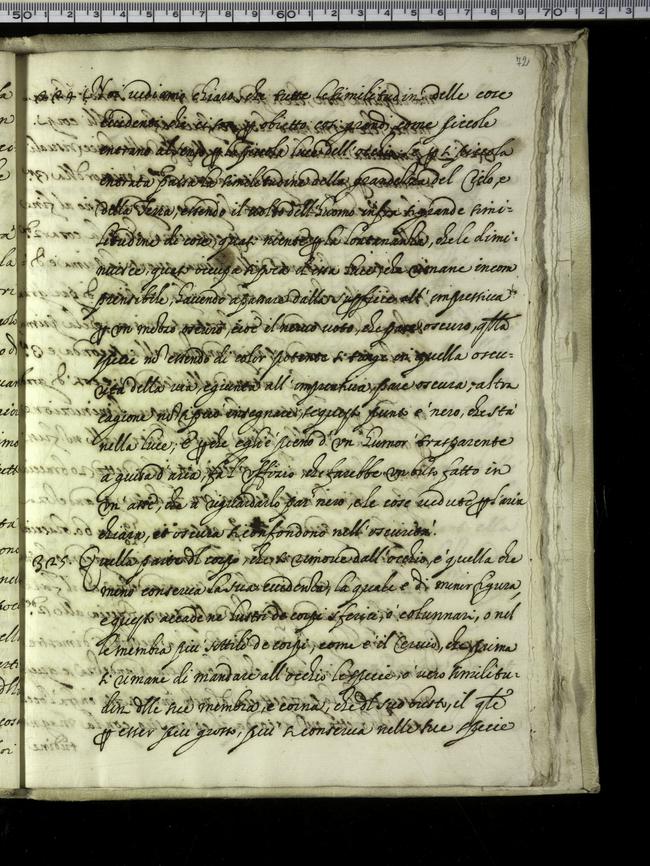 72
324 Noi vediamo chiaro, che tutte le similitudini delle cose
evidenti, che ci son p obietto così grandi, come piccole
entrano al senso p la piccola luce dell'occhio. Se p sì piccola
entrata passa la similitudine della grandezza del Cielo, e
della Terra, essendo il volto dell'huomo infra sì grande simi-
litudine di cose, quasi niente p la lontananza, che le dimi-
nuisce, occupa sì poco d'essa luce, che rimane incom
prensibile, havendo a passare dalla supficie all'impressiva
p un mezzo oscuro, cioè il nervo voto, che pare oscuro, qlla
spetie nō essendo di color potente si tinge in quella oscu-
rità della via, e giunta all'impressiva, pare oscura, altra
cagione nō si può in quel punto è nero, che stà
nella luce; e pche egli è pieno d'un humor trasparente
a guisa d'aria, fa l'offizio, che farebbe un buso fatto in
un' asse, che a riguardarlo par nero, e le cose vedute p l'aria
chiara, et oscura si confondono nell'oscurità.
325. Quella parte dl corpo, che si rimove dall'occhio, è quella che
meno conserva la sua evidenza, la quale è di minor figura,
e questo accade ne lustri de corpi sferici, ò colunnari, o nel
le membra più sottili de corpi, come è il Cervio, che prima
si rimane di mandare all'occhio le spetie, o vero similitu-
dini dlle sue membra, e corna, che dl suo busto, il qle
p esser più grosso, più si conserva nelle sue spetie